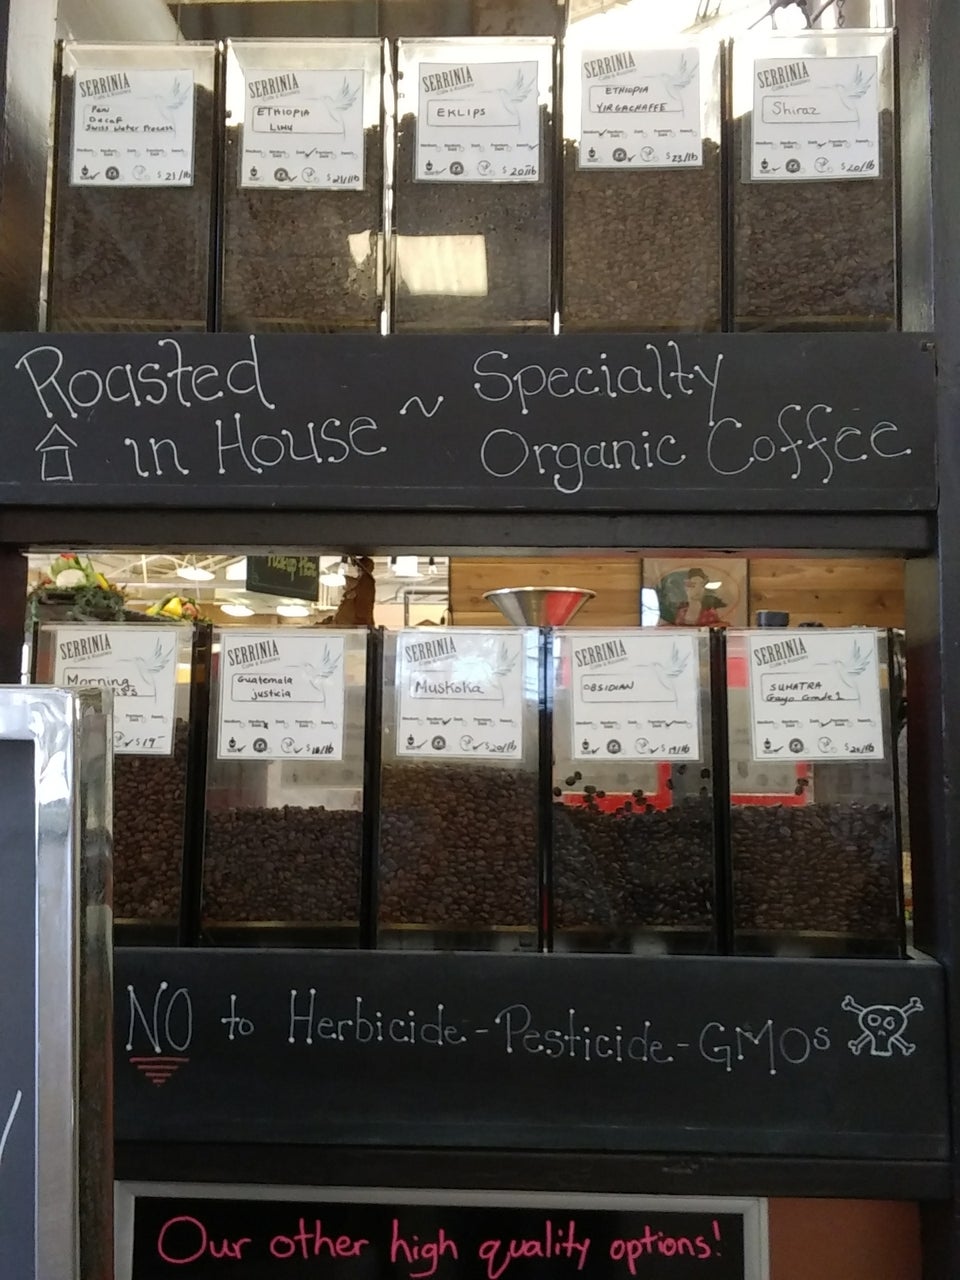 SERRINIA
Peru
Decaf
Swiss Water Process
SERRINIA
ETHIOPIA
LIMU
SERRINIA
EKLIPS
$20/lb
SERRINIA
ETHIOPIA
YIRGACHAFFE
$23/lb
SERRINIA
Shiraz
$20/lb
Roasted
in House ~ Specialty
Organic Coffee
Pickup Here
SERRINIA
Morning
$19
SERRINIA
Guatemala
justicia
SERRINIA
Muskoka
$20/lb
SERRINIA
OBSIDIAN
$19/lb
SERRINIA
SUMATRA
Gayo Grade 1
NO to Herbicide-Pesticide-GMOs
Our other high quality options!